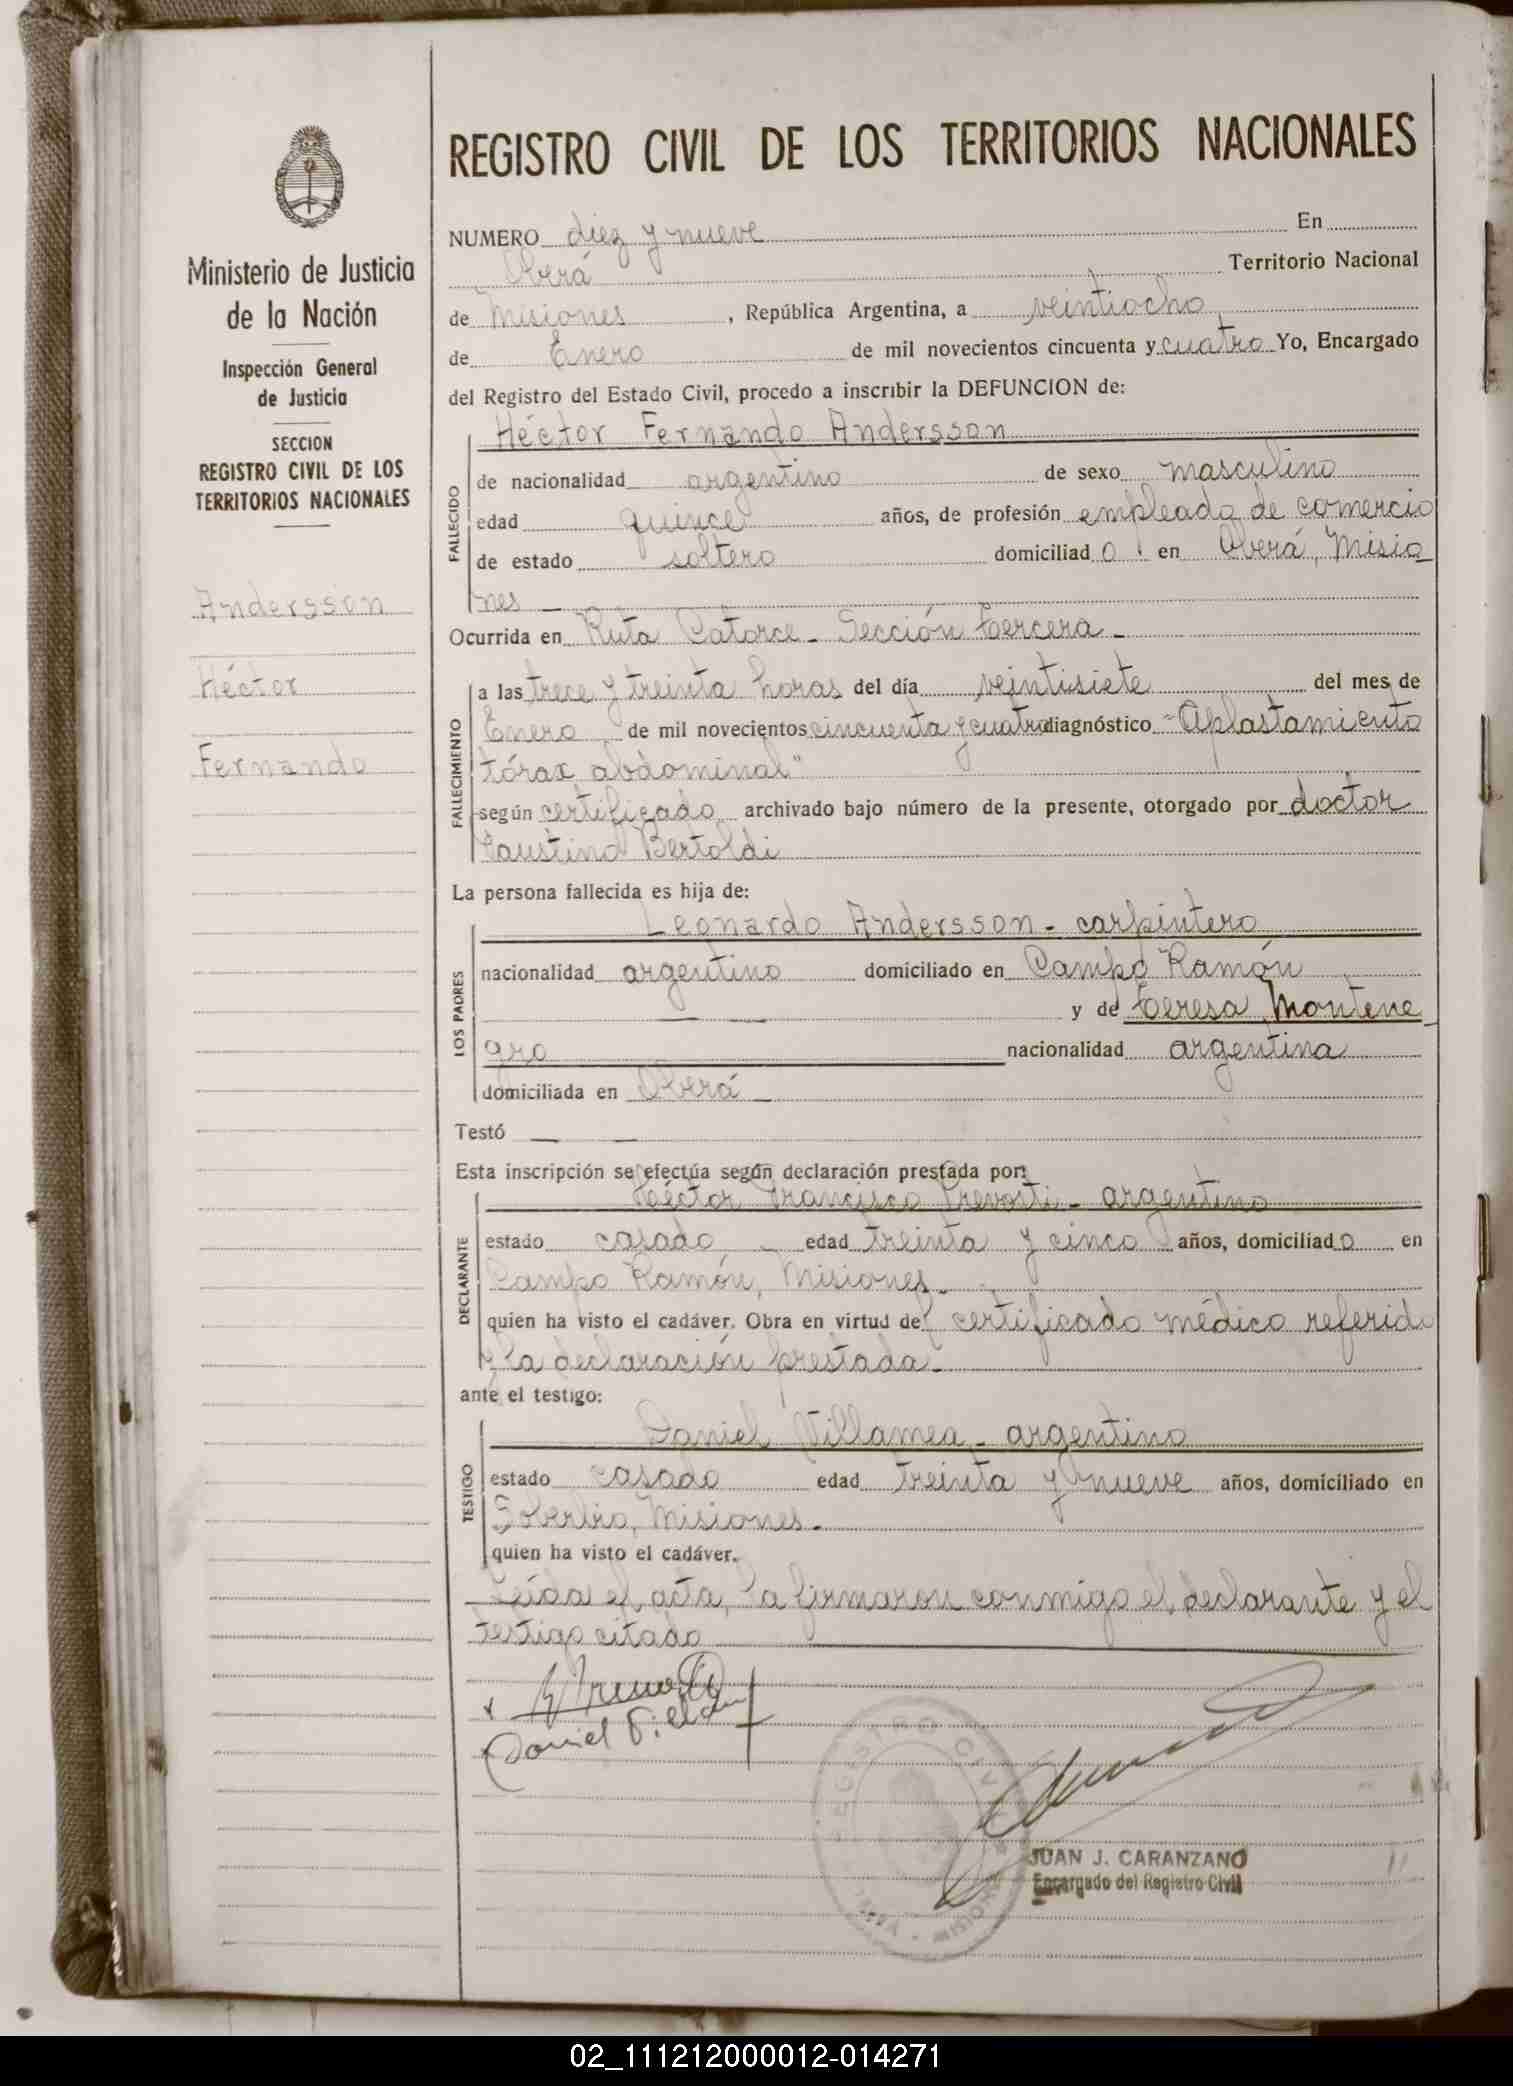 REGISTRO CIVIL DE LOS TERRITORIOS NACIONALES
Ministerio de Justicia
de la Nación
Inspección General
de Justicia
SECCION
REGISTRO CIVIL DE LOS
TERRITORIOS NACIONALES
Andersson
Héctor
Fernando
NUMERO diez y nueve En
Oberá Territorio Nacional
de Misiones , República Argentina, a veintiocho
de Enero de mil novecientos cincuenta y cuatro Yo, Encargado
del Registro del Estado Civil, procedo a inscribir la DEFUNCION de:
Héctor Fernando Andersson
FALLECIDO
de nacionalidad argentino de sexo masculino
edad quince años, de profesión empleado de comercio
de estado soltero domiciliado en Oberá, Misio
nes
Ocurrida en Ruta Catorce - Sección tercera -
FALLECIMIENTO
a las trece y treinta horas del día veintisiete del mes de
Enero de mil novecientos cincuenta y cuatro diagnóstico "Aplastamiento
tórax abdominal"
según certificado archivado bajo número de la presente, otorgado por doctor
Faustino Bertoldi
La persona fallecida es hija de:
LOS PADRES
Leonardo Andersson - carpintero
nacionalidad argentino domiciliado en Campo Ramón
y de Teresa Montene
gro nacionalidad argentina
domiciliada en Oberá
Testó
Esta inscripción se efectúa según declaración prestada por:
DECLARANTE
Héctor Francisco Prevosti - argentino
estado casado edad treinta y cinco años, domiciliado en
Campo Ramón, Misiones -
quien ha visto el cadáver. Obra en virtud del certificado médico referido
y la declaración prestada -
ante el testigo:
TESTIGO
Daniel Villamea - argentino
estado casado edad treinta y nueve años, domiciliado en
Soberbio, Misiones -
quien ha visto el cadáver.
Leída el acta, la firmaron conmigo el declarante y el
testigo citado
Daniel
REGISTRO CIVIL
MISIONES
JUAN J. CARANZANO
Encargado del Registro Civil
02_111212000012-014271